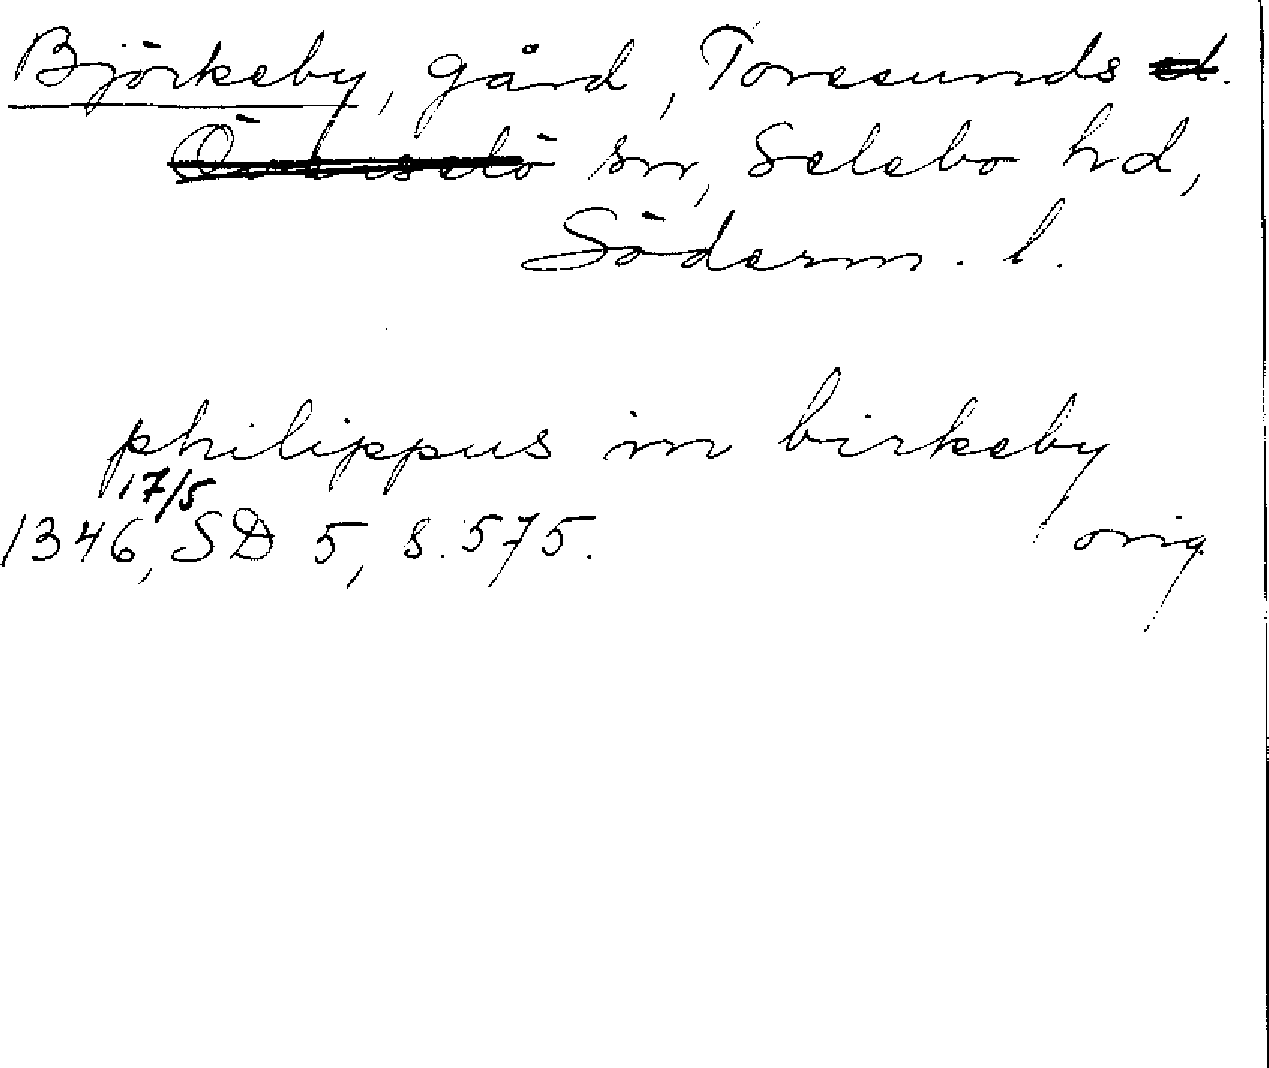 Björkeby, gård, Toresunds
sn, Selebo hd,
Söderm. l.
philippus in birkeby
17/5
1346, SD 5, s. 575. orig